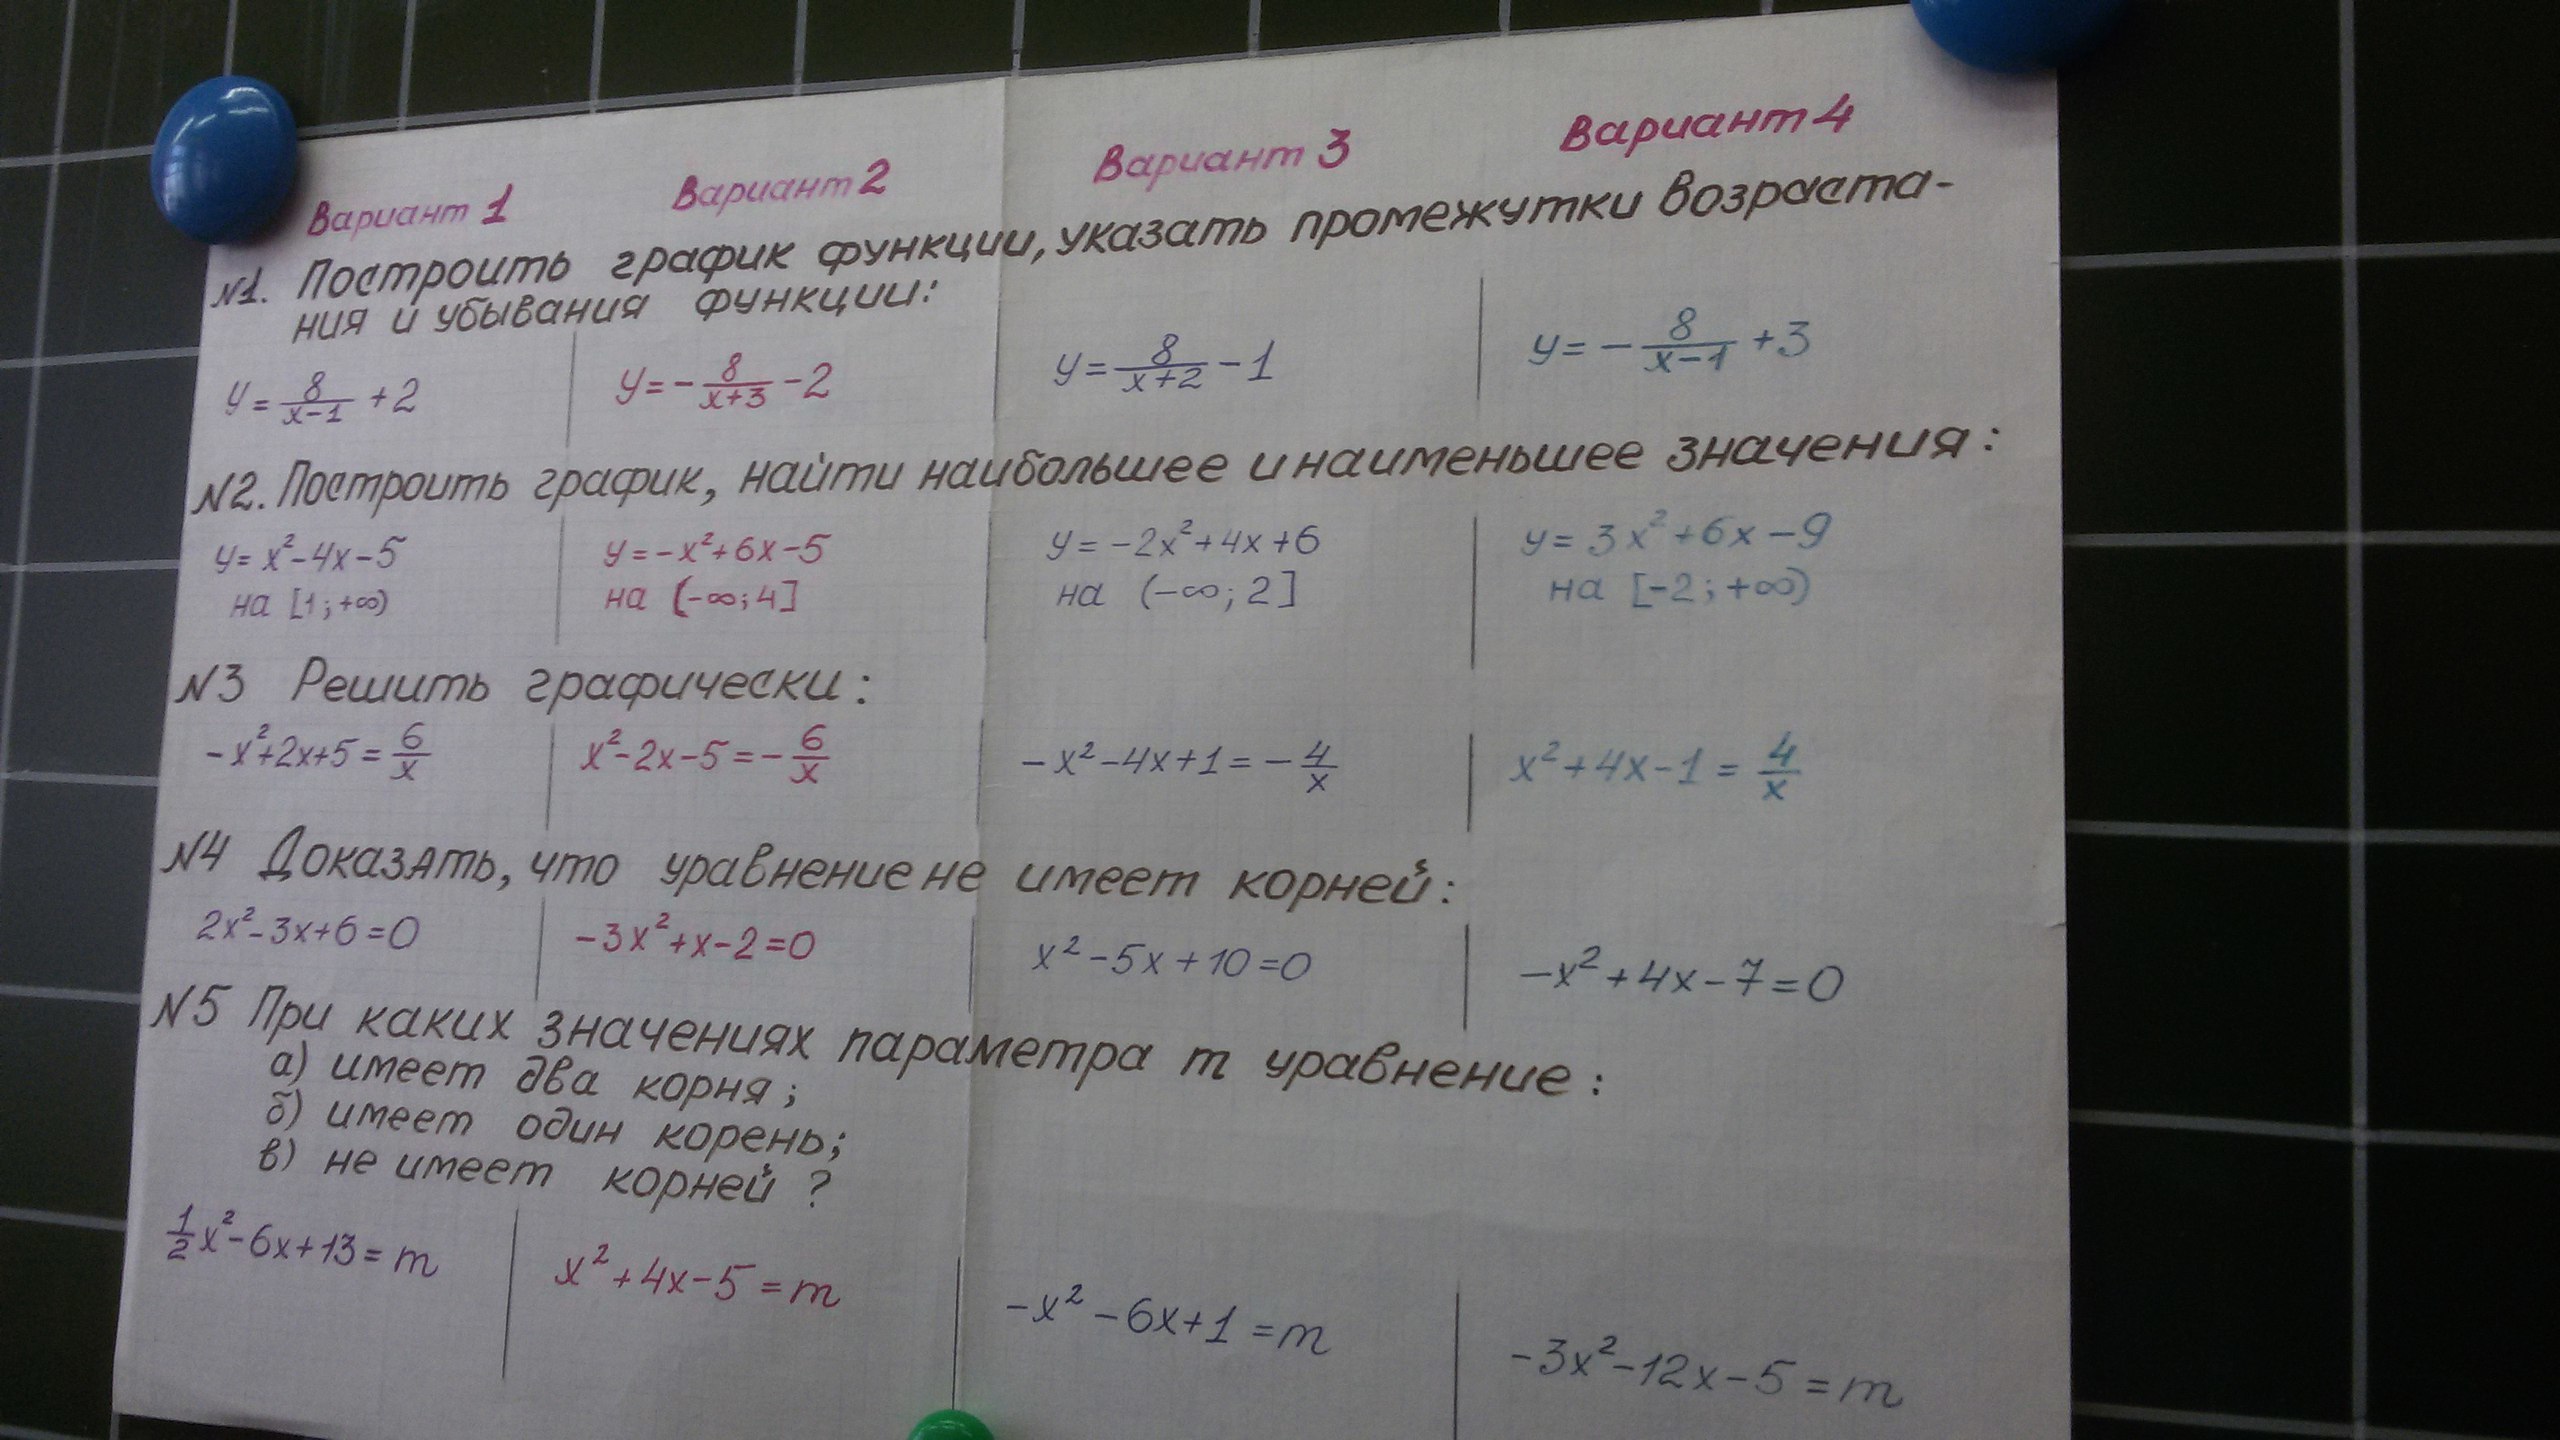 Вариант 1 Вариант 2 Вариант 3 Вариант 4
№1. Построить график функции, указать промежутки возраста-
ния и убывания функции:
y = 8/(x-1) + 2 y = -8/(x+3) - 2 y = 8/(x+2) - 1 y = -8/(x-1) + 3
№2. Построить график, найти наибольшее и наименьшее значения:
y = x² - 4x - 5 y = -x² + 6x - 5 y = -2x² + 4x + 6 y = 3x² + 6x - 9
на [1; +∞) на (-∞; 4] на (-∞; 2] на [-2; +∞)
№3 Решить графически:
-x² + 2x + 5 = 6/x x² - 2x - 5 = -6/x -x² - 4x + 1 = -4/x x² + 4x - 1 = 4/x
№4 Доказать, что уравнение не имеет корней:
2x² - 3x + 6 = 0 -3x² + x - 2 = 0 x² - 5x + 10 = 0 -x² + 4x - 7 = 0
№5 При каких значениях параметра m уравнение:
а) имеет два корня;
б) имеет один корень;
в) не имеет корней?
1/2x² - 6x + 13 = m x² + 4x - 5 = m -x² - 6x + 1 = m -3x² - 12x - 5 = m